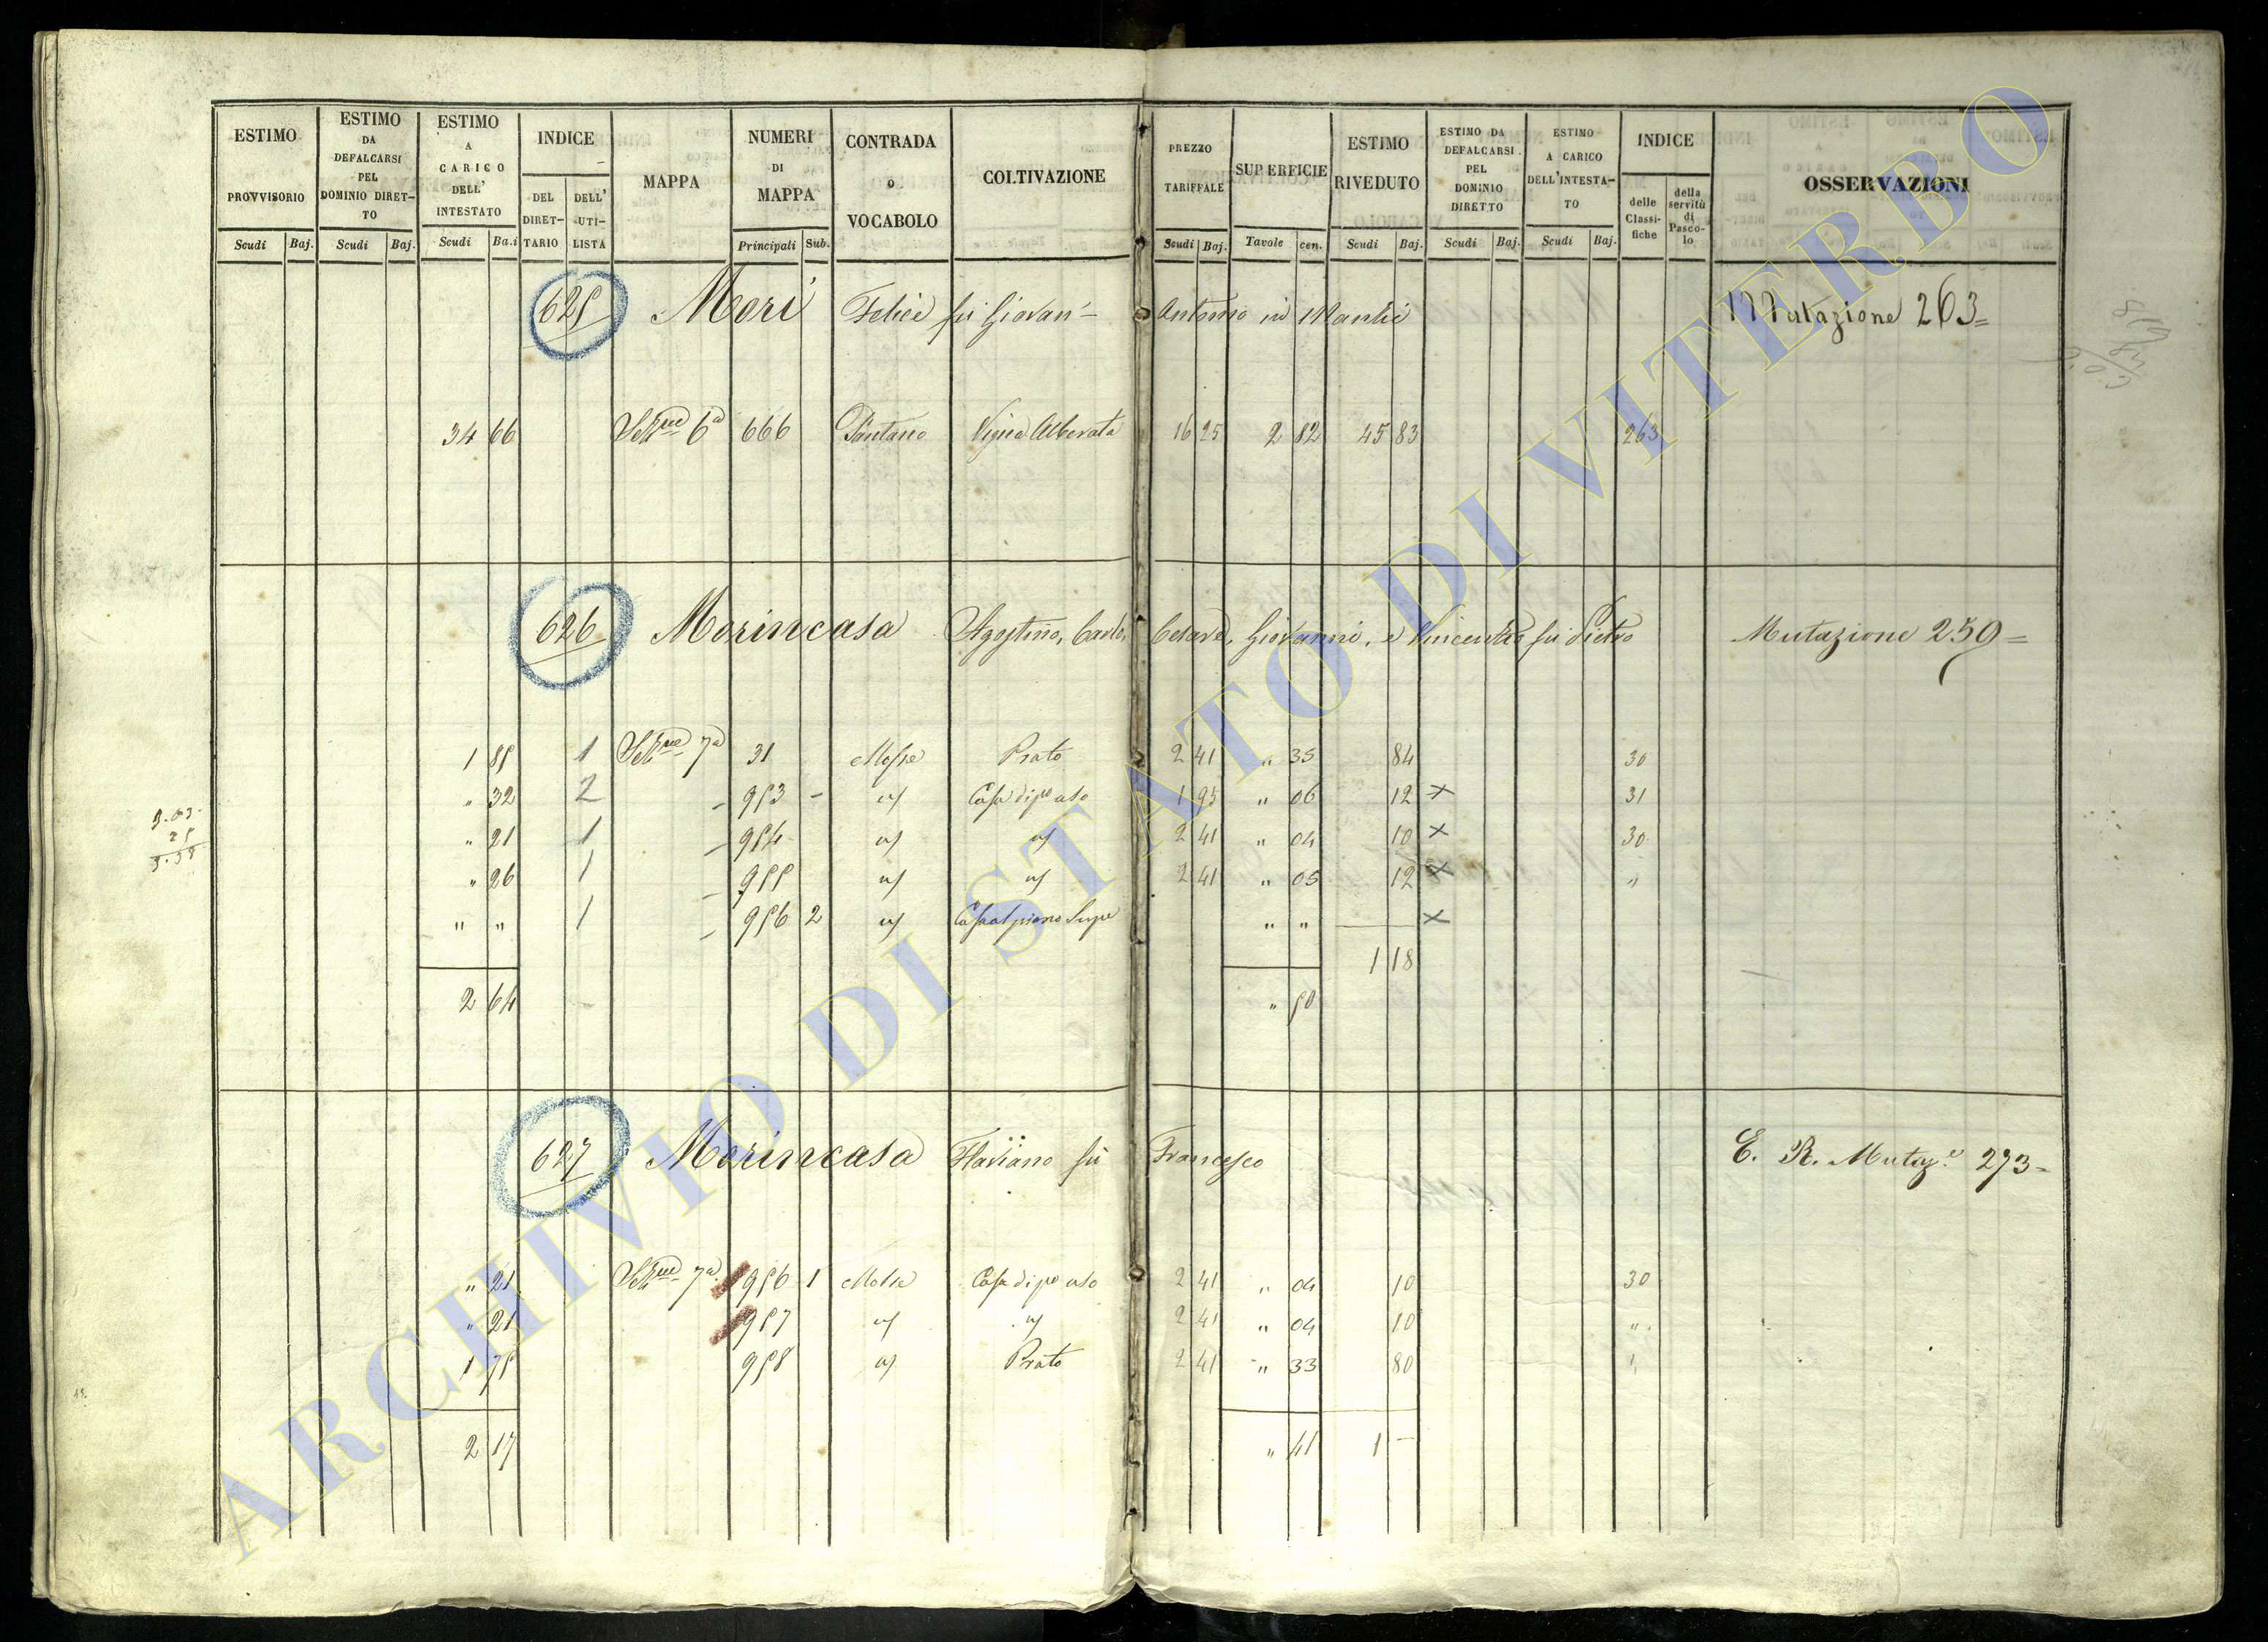 ESTIMO PROVVISORIO Scudi Baj.
ESTIMO DA DEFALCARSI PEL DOMINIO DIRETTO Scudi Baj.
ESTIMO A CARICO DELL' INTESTATO Scudi Ba.i
INDICE DEL DIRETTARIO DELL' UTILISTA
MAPPA
NUMERI DI MAPPA Principali Sub.
CONTRADA O VOCABOLO
COLTIVAZIONE
PREZZO TARIFFALE Scudi Baj.
SUPERFICIE Tavole cen.
ESTIMO RIVEDUTO Scudi Baj.
ESTIMO DA DEFALCARSI PEL DOMINIO DIRETTO Scudi Baj.
ESTIMO A CARICO DELL'INTESTATO Scudi Baj.
INDICE delle Classifiche della servitù di Pascolo
OSSERVAZIONI
625 Mori Felice fu Giovan- Antonio in Manlio Mutazione 263=
34 66 Sez.ne 6a 666 Pantano Vigna Alberata 16 25 2 82 45 83 263
626 Morincasa Agostino, Carlo, Cesare, Giovanni, e Vincenzo fu Pietro Mutazione 259=
1 85 1 Sez.ne 7a 31 Mossa Prato 2 41 " 35 84 30
" 32 2 - 953 - " Casa di po uso 1 95 " 06 12 x 31
" 21 1 - 954 " " 2 41 " 04 10 x 30
" 26 1 - 955 " " 2 41 " 05 12 x "
" " 1 - 956 2 " Casa al piano Supe " " x
1 18
2 64 " 50
3.03
627 Morincasa Flaviano fu Francesco E. R. Mutaz.e 273=
" 21 Sez.ne 7a 956 1 Mossa Casa di po uso 2 41 " 04 10 30
" 21 957 " " 2 41 " 04 10 "
1 75 958 " Prato 2 41 " 33 80 "
2 17 " 41 1 -
ARCHIVIO DI STATO DI VITERBO